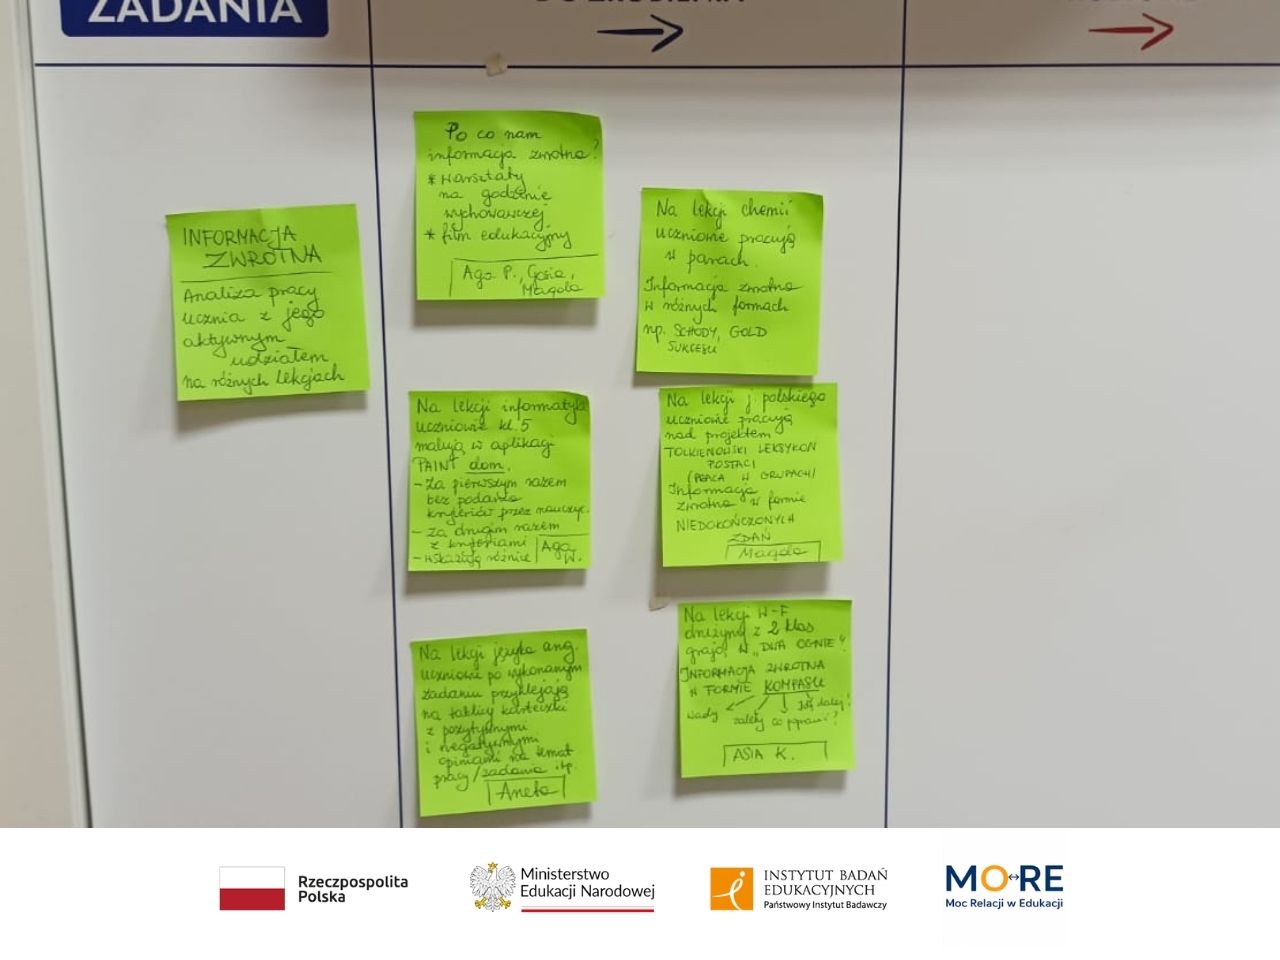 ZADANIA
INFORMACJA
ZWROTNA
Analiza pracy
ucznia z jego
aktywnym
udziałem
na różnych lekcjach
Po co nam
informacja zwrotna?
* Warsztaty
na godzinie
wychowawczej
* film edukacyjny
Aga P., Gosia,
Magda
Na lekcji chemii
uczniowie pracują
w parach.
Informacja zwrotna
w różnych formach
np. SCHODY, GOLD
SUKCESU
Na lekcji informatyki
uczniowie kl. 5
malują w aplikacji
PAINT dom.
- Za pierwszym razem
bez podania
kryteriów przez nauczyc.
- Za drugim razem
z kryteriami
- wskazują różnice
Aga
W.
Na lekcji j. polskiego
uczniowie pracują
nad projektem
TOLKIENOWSKI LEKSYKON
POSTACI
(PRACA W GRUPACH)
Informacja
zwrotna w formie
NIEDOKOŃCZONYCH
ZDAŃ
Magda
Na lekcji języka ang.
uczniowie po wykonanym
zadaniu przyklejają
na tablicy karteczki
z pozytywnymi
i negatywnymi
opiniami na temat
pracy/zadania itp.
Aneta
Na lekcji W-F
drużyny z 2 klas
grają w "DWA OGNIE".
INFORMACJA ZWROTNA
W FORMIE KOMPASU
wady zalety co poprawić? Idź dalej!
ASIA K.
Rzeczpospolita
Polska
Ministerstwo
Edukacji Narodowej
INSTYTUT BADAŃ
EDUKACYJNYCH
Państwowy Instytut Badawczy
MO↔RE
Moc Relacji w Edukacji